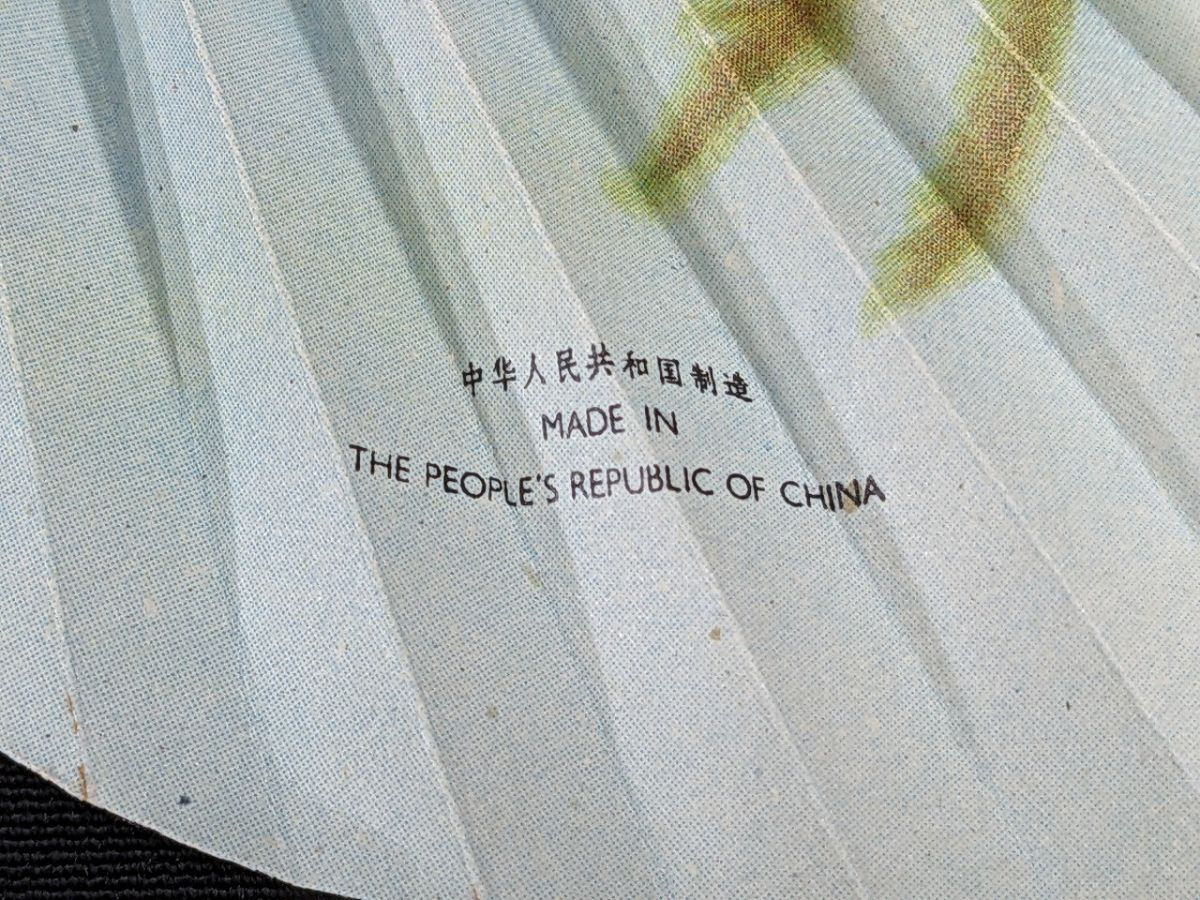 中华人民共和国制造
MADE IN
THE PEOPLE'S REPUBLIC OF CHINA